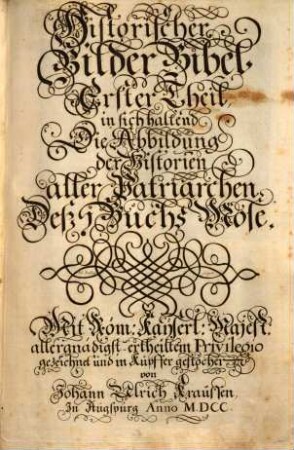 Historischer
Bilder Bibel.
Erster Theil,
in sich haltend
Die Abbildung
der Historien
aller Patriarchen
Deß 1 Buchs Mose.
Mit Röm: Kaÿserl: Majest.
allergnädigst ertheiltem Privilegio
gezeichnet und in Kupffer gestochen
von
Johann Ulrich Kraussen.
In Augspurg Anno M.DCC.